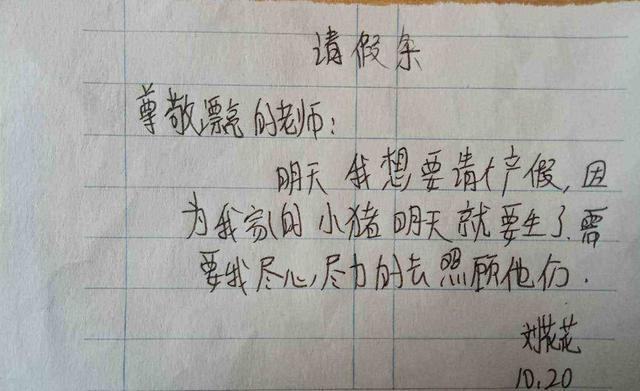 请假条
尊敬漂亮的老师：
明天 我想要请产假，因
为我家的 小猪 明天就要生了.需
要我尽心尽力的去照顾他们.
刘花花
10.20